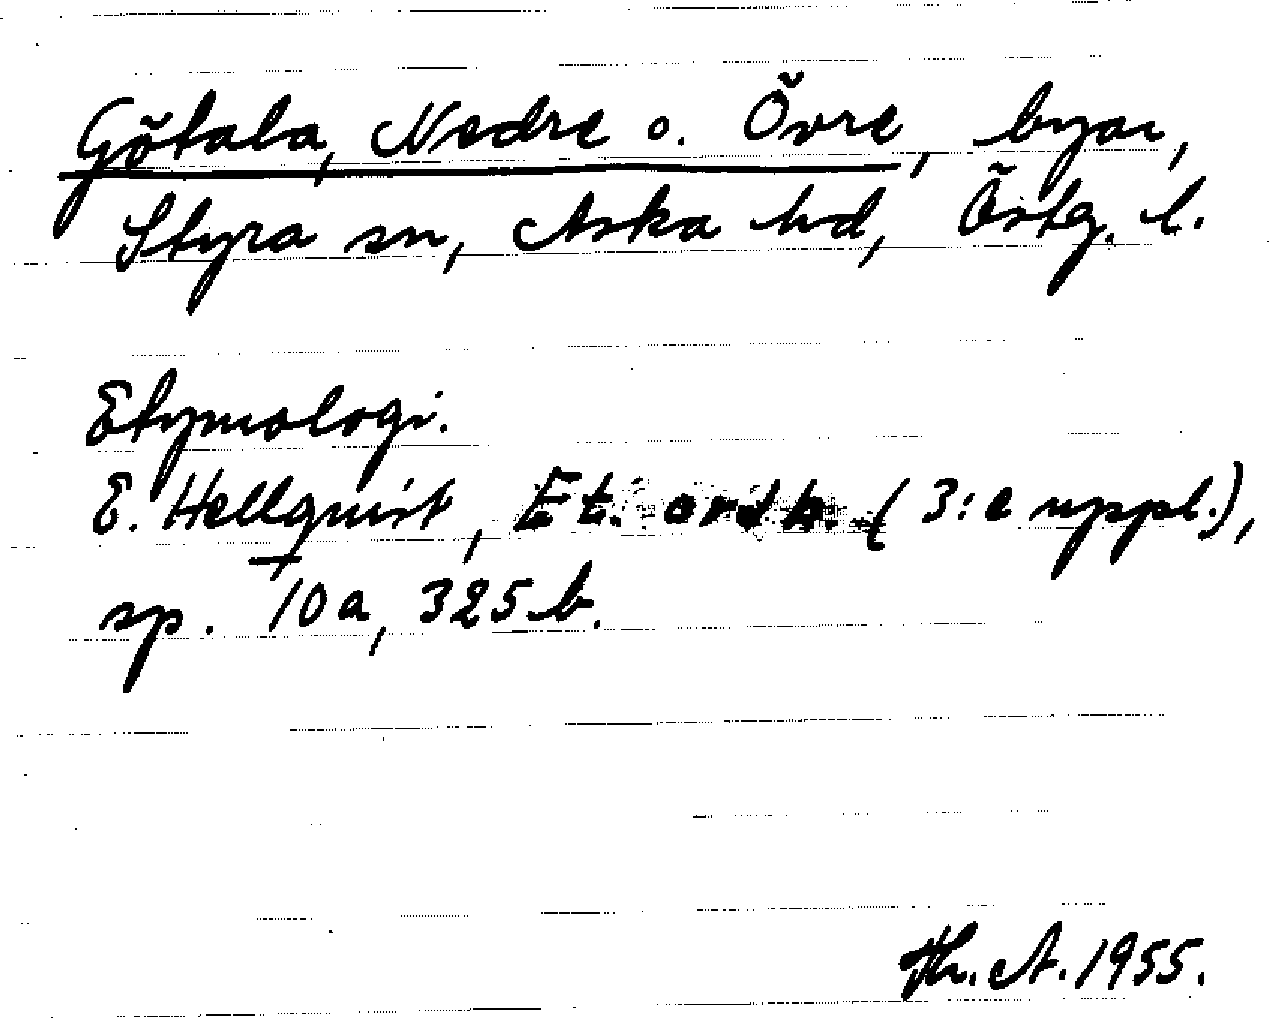 Götala, Nedre o. Övre, byar,
Styra sn, Aska hd, Östg. l.
Etymologi.
E. Hellquist, Et. ordb. (3:e uppl.),
sp. 10a, 325b.
Th. A. 1955.